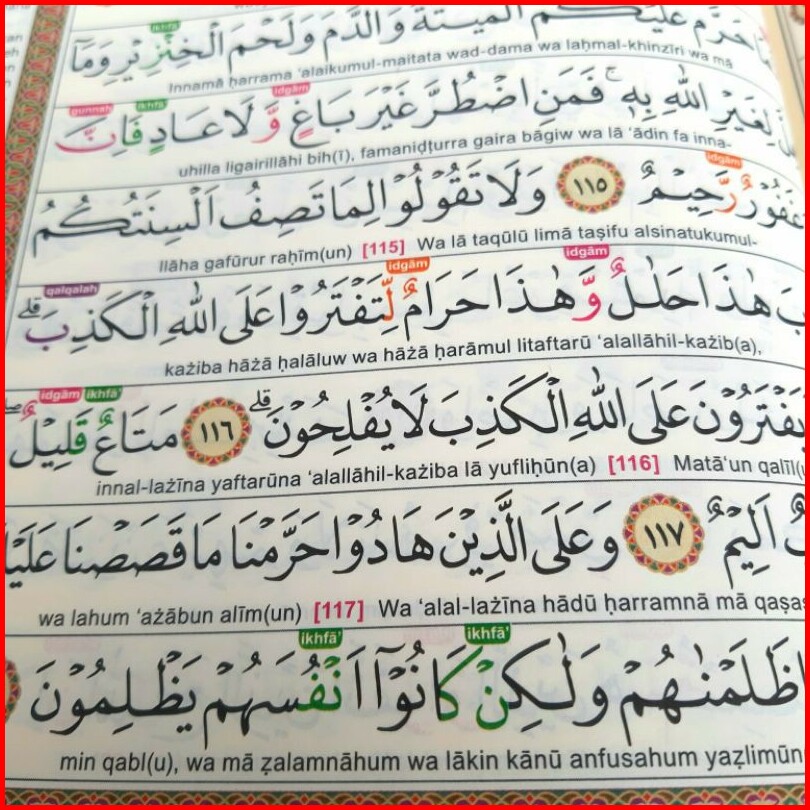 حَرَّمَ عَلَيْكُمُ الْمَيْتَةَ وَالدَّمَ وَلَحْمَ الْخِنْزِيْرِ وَمَآ
ikhfā'
Innamā ḥarrama 'alaikumul-maitata wad-dama wa laḥmal-khinzīri wa mā
لِغَيْرِ اللّٰهِ بِهٖ ۚ فَمَنِ اضْطُرَّ غَيْرَ بَاغٍ وَّلَا عَادٍ فَاِنَّ
idgām ikhfā' gunnah
uhilla ligairillāhi bih(ī), famaniḍṭurra gaira bāgiw wa lā 'ādin fa inna-
غَفُوْرٌ رَّحِيْمٌ ١١٥ وَلَا تَقُوْلُوْا لِمَا تَصِفُ اَلْسِنَتُكُمُ
idgām
llāha gafūrur raḥīm(un) [115] Wa lā taqūlū limā taṣifu alsinatukumul-
هٰذَا حَلٰلٌ وَّهٰذَا حَرَامٌ لِّتَفْتَرُوْا عَلَى اللّٰهِ الْكَذِبَ ۗ
idgām idgām qalqalah
każiba hāżā ḥalāluw wa hāżā ḥarāmul litaftarū 'alallāhil-każib(a),
يَفْتَرُوْنَ عَلَى اللّٰهِ الْكَذِبَ لَا يُفْلِحُوْنَ ۗ ١١٦ مَتَاعٌ قَلِيْلٌ ۖ
ikhfā' idgām
innal-lażīna yaftarūna 'alallāhil-każiba lā yufliḥūn(a) [116] Matā'un qalīl(
اَلِيْمٌ ١١٧ وَعَلَى الَّذِيْنَ هَادُوْا حَرَّمْنَا مَا قَصَصْنَا
wa lahum 'ażābun alīm(un) [117] Wa 'alal-lażīna hādū ḥarramnā mā qaṣaṣ
ظَلَمْنٰهُمْ وَلٰكِنْ كَانُوْٓا اَنْفُسَهُمْ يَظْلِمُوْنَ
ikhfā' ikhfā'
min qabl(u), wa mā ẓalamnāhum wa lākin kānū anfusahum yaẓlimūn